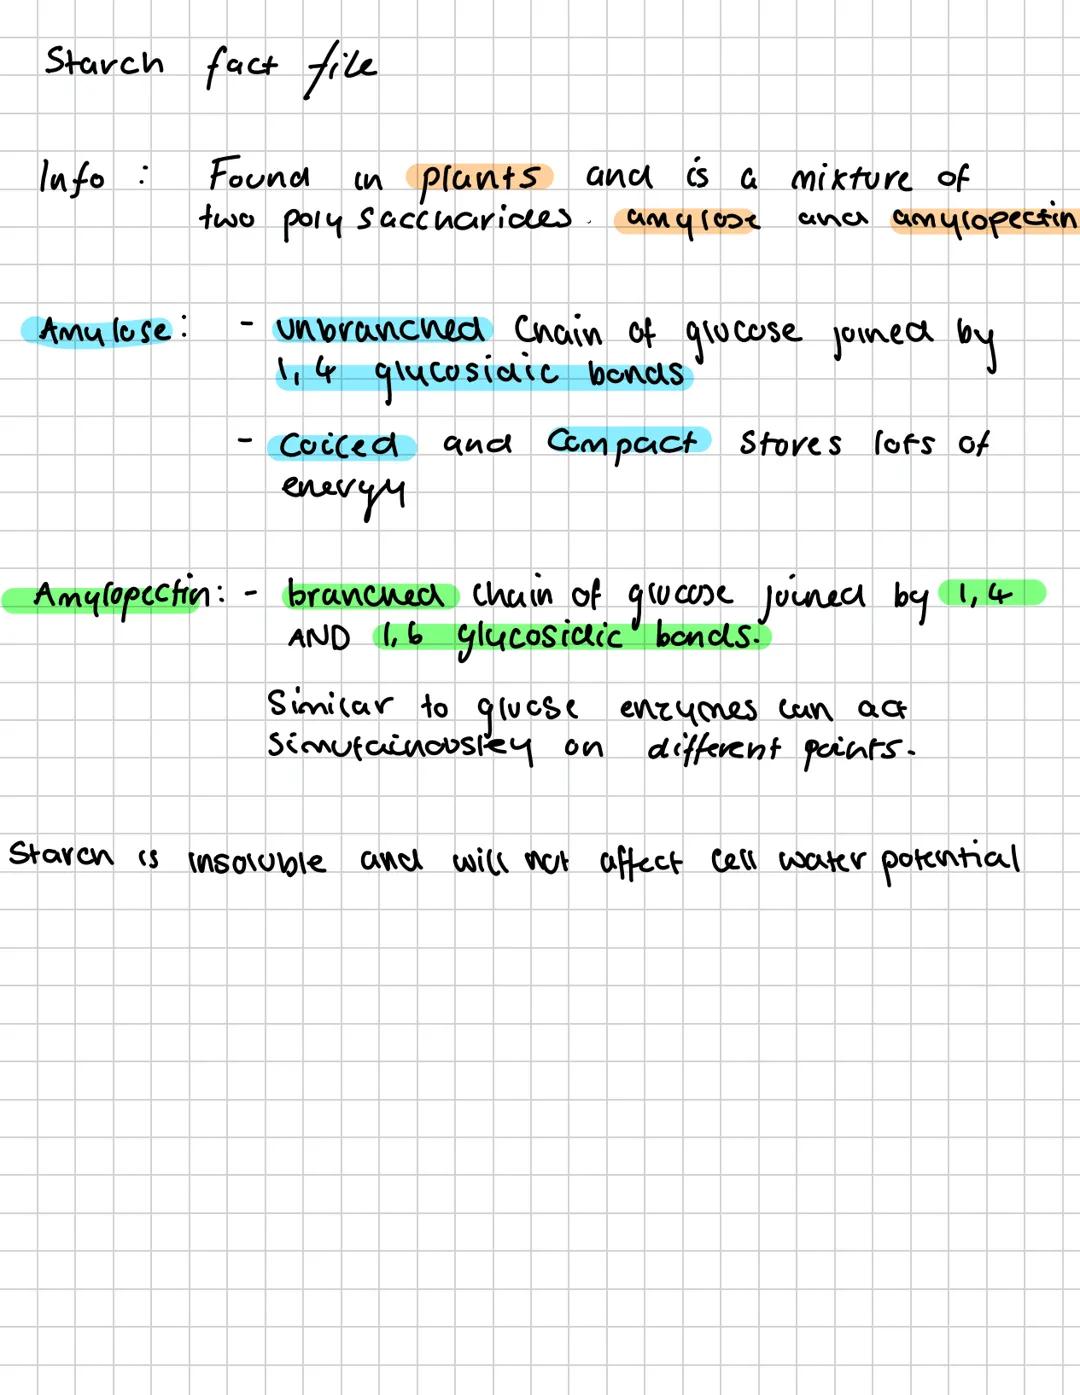 Starch fact file
Info : Found in plants and is a mixture of
two polysaccharides. amylose and amylopectin
Amylose: - unbranched Chain of glucose joined by
1,4 glycosidic bonds
- Coiled and Compact Stores lots of
energy
Amylopectin: - branched chain of glucose joined by 1,4
AND 1,6 glycosidic bonds.
Similar to glucse enzymes can act
simultainously on different points.
Starch is insoluble and will not affect cell water potential